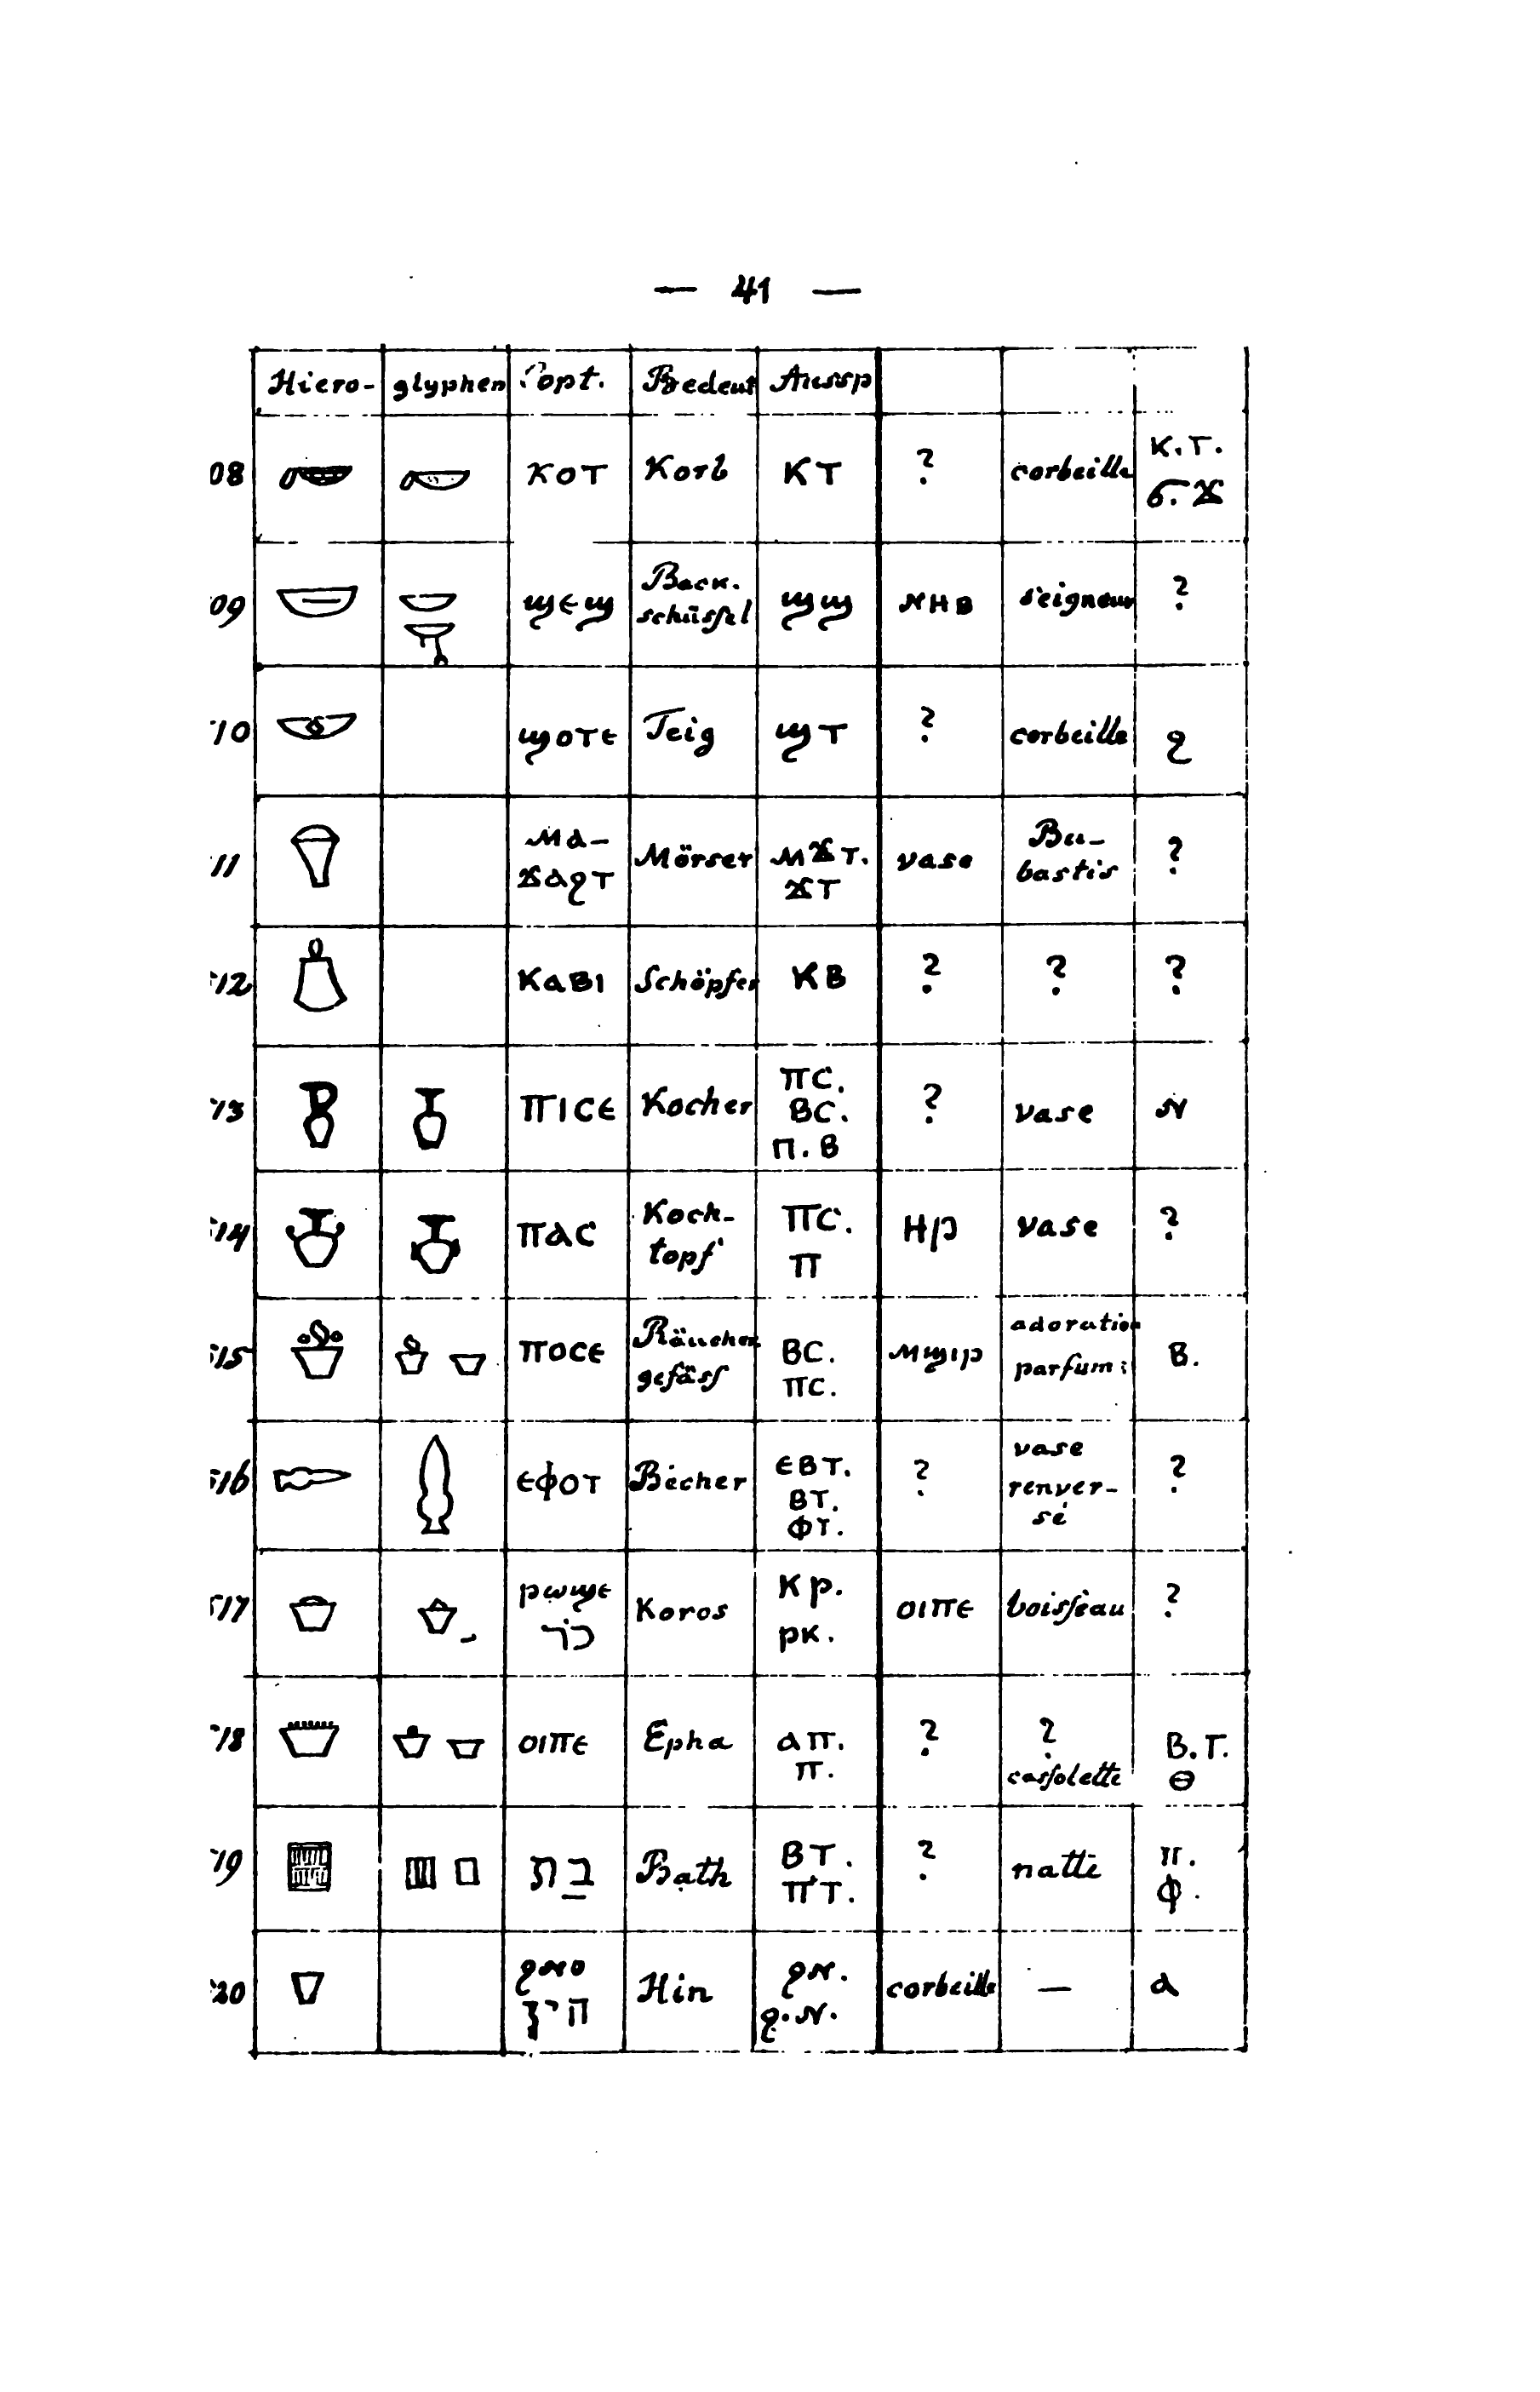 — 41 —
Hiero- glyphen Copt. Bedeut Aussp
08 ⲕⲟⲧ Korb ⲕⲧ ? corbeille ⲕ.ⲧ. ϭ.ϫ
09 ϣⲉϣ Back. schüssel ϣϣ ⲛⲏⲃ seigneur ?
10 ϣⲟⲧⲉ Teig ϣⲧ ? corbeille ϩ
11 ⲙⲁ- ϫⲁϩⲧ Mörser ⲙϫⲧ. ϫⲧ vase Bu- bastis ?
12 ⲕⲁⲃⲓ Schöpfer ⲕⲃ ? ? ?
13 ⲡⲓⲥⲉ Kocher ⲡⲥ. ⲃⲥ. ⲡ.ⲃ ? vase ⲛ
14 ⲡⲁⲥ Koch- topf ⲡⲥ. ⲡ ⲏⲣⲡ vase ?
15 ⲡⲟⲥⲉ Räucher gefäss ⲃⲥ. ⲡⲥ. ⲙϣⲓⲣ adoration parfum: ⲃ.
16 ⲉⲫⲟⲧ Becher ⲉⲃⲧ. ⲃⲧ. ⲫⲧ. ? vase renver- sé ?
17 ⲣⲱϣⲉ כר Koros ⲕⲣ. ⲣⲕ. ⲟⲓⲡⲉ boisseau ?
18 ⲟⲓⲡⲉ Epha ⲁⲡ. ⲡ. ? ? cassolette ⲃ.ⲧ. ⲑ
19 בת Bath ⲃⲧ. ⲡⲧ. ? natte ⲡ. ⲫ.
20 הין Hin ϩⲛ. ϩ.ⲛ. corbeille — ⲁ